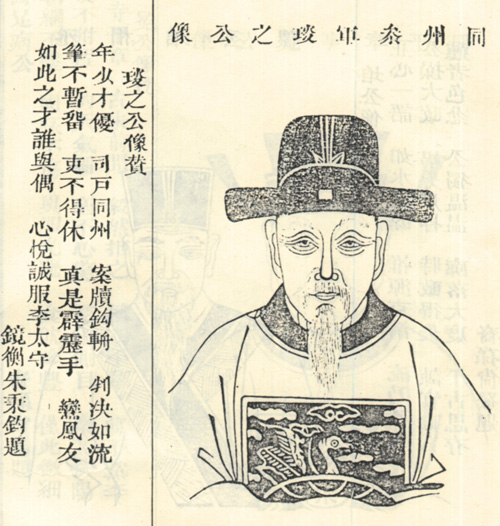 同州叅軍琰之公像
琰之公像贊
年少才優 司戶同州 案牘鈎輈 判決如流
筆不暫畱 吏不得休 真是霹靂手 鸞鳳友
如此之才誰與偶 心悅誠服李太守
鏡衡朱秉鈞題